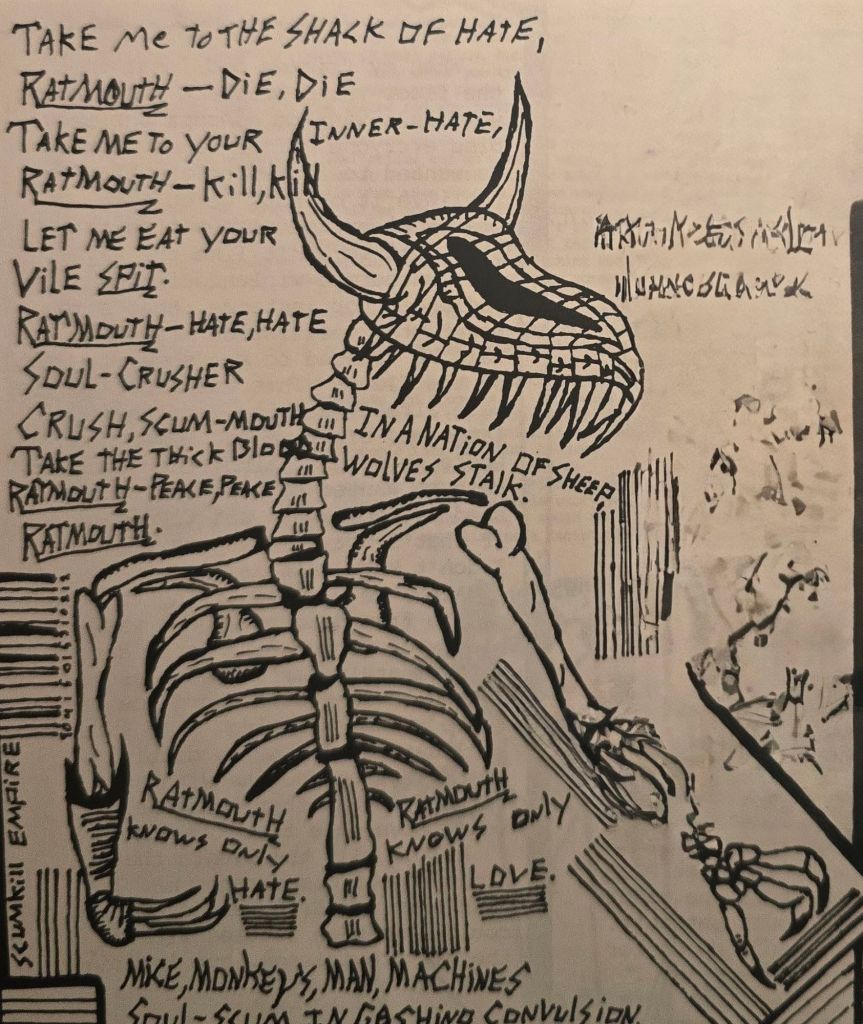 TAKE ME TO THE SHACK OF HATE,
RATMOUTH – DIE, DIE
TAKE ME TO YOUR INNER-HATE,
RATMOUTH – KILL, KILL
LET ME EAT YOUR
VILE SPIT.
RATMOUTH – HATE, HATE
SOUL-CRUSHER
CRUSH, SCUM-MOUTH
TAKE THE THICK BLOOD
RATMOUTH – PEACE, PEACE
RATMOUTH.
IN A NATION OF SHEEP,
WOLVES STALK.
SCUMKILL EMPIRE
RATMOUTH
KNOWS ONLY
HATE.
RATMOUTH
KNOWS ONLY
LOVE.
MICE, MONKEYS, MAN, MACHINES
SOUL-SCUM IN GASHING CONVULSION